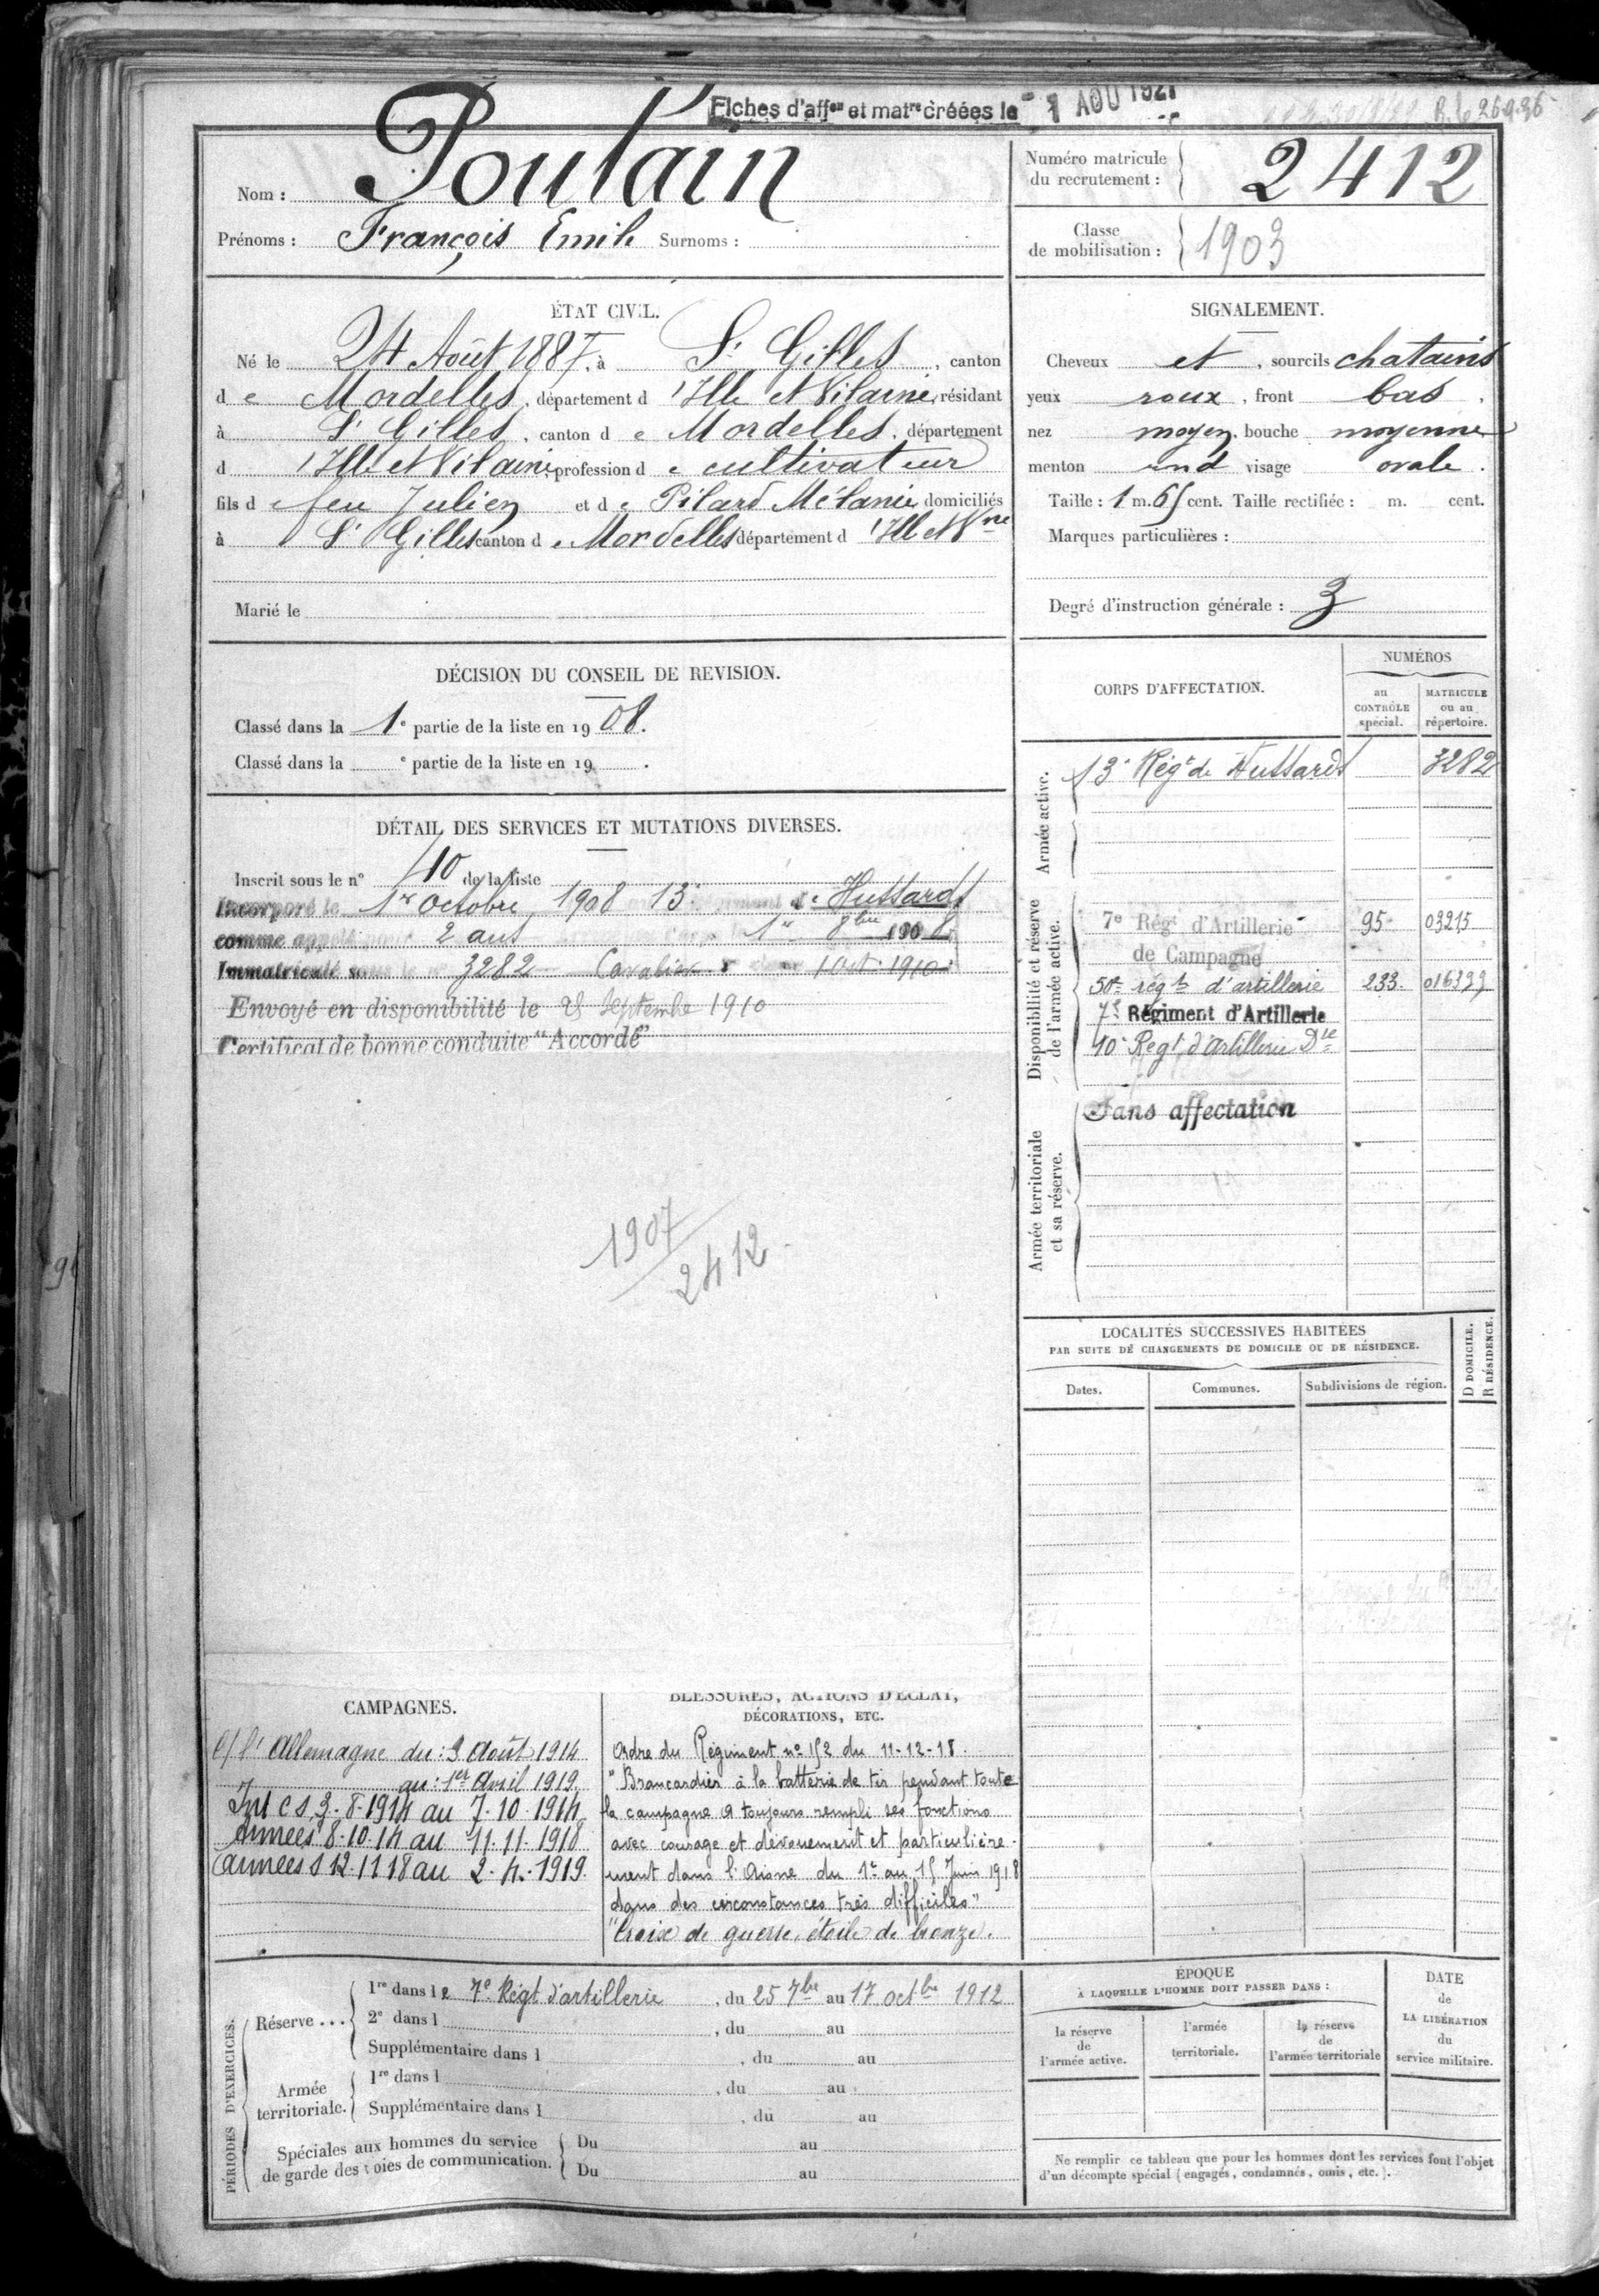 Fiches d'aff^on et mat^re créées le 1 AOU 1927
R. le 26.9.36
Nom : Poulain
Prénoms : François Emile Surnoms :
Numéro matricule du recrutement : 2412
Classe de mobilisation : 1903
ÉTAT CIVIL.
Né le 24 Août 1887, à S^t Gilles, canton
de Mordelles, département d'Ille et Vilaine, résidant
à S^t Gilles, canton de Mordelles, département
d'Ille et Vilaine, profession de cultivateur
fils de feu Julien et de Pilard Mélanie, domiciliés
à S^t Gilles canton de Mordelles département d'Ille et V^ne
Marié le
SIGNALEMENT.
Cheveux et, sourcils chatains
yeux roux, front bas,
nez moyen, bouche moyenne
menton rond visage ovale.
Taille : 1 m. 65 cent. Taille rectifiée : m. cent.
Marques particulières :
Degré d'instruction générale : 3
DÉCISION DU CONSEIL DE REVISION.
Classé dans la 1^e partie de la liste en 1908.
Classé dans la ^e partie de la liste en 19 .
DÉTAIL DES SERVICES ET MUTATIONS DIVERSES.
Inscrit sous le n° 40 de la liste
Incorporé le 1^er octobre 1908 13^e Régiment de Hussards
comme appelé pour 2 ans 1^er 8^bre 1908
Immatriculé sous le n° 3282 Cavalier 1 Oct. 1910
Envoyé en disponibilité le 25 Septembre 1910
Certificat de bonne conduite "Accordé"
1907
2412
CORPS D'AFFECTATION.
NUMÉROS
au CONTRÔLE spécial.
MATRICULE ou au répertoire.
Armée active.
13^e Rég^t de Hussards 3282
Disponibilité et réserve de l'armée active.
7^e Rég^t d'Artillerie 95 03215
de Campagne
50^e rég^t d'artillerie 233
7^e Régiment d'Artillerie
10^e Reg^t d'artillerie D^ie
Armée territoriale et sa réserve.
Sans affectation
LOCALITÉS SUCCESSIVES HABITÉES
PAR SUITE DE CHANGEMENTS DE DOMICILE OU DE RÉSIDENCE.
Dates.
Communes.
Subdivisions de région.
D DOMICILE.
R RÉSIDENCE.
CAMPAGNES.
c/ l'Allemagne du : 3 Août 1914
au : 1^er Avril 1919.
Int C S 3-8-1914 au 7-10-1914
Armées 8-10-14 au 11-11-1918
Armées S 12-11 18 au 2-4-1919.
BLESSURES, ACTIONS D'ÉCLAT,
DÉCORATIONS, ETC.
Ordre du Régiment n° 152 du 11-12-18.
"Brancardier à la batterie de tir pendant toute
la campagne a toujours rempli ses fonctions
avec courage et dévouement et particulière-
ment dans l'Aisne du 1^er au 15 Juin 1918
dans des circonstances très difficiles"
"Croix de guerre, étoile de bronze.
PÉRIODES D'EXERCICES.
Réserve ...
1^re dans le 7^e Régt d'artillerie, du 25 7^bre au 17 oct^bre 1912
2^e dans l , du au
Supplémentaire dans l , du au
Armée territoriale.
1^re dans l , du au
Supplémentaire dans l , du au
Spéciales aux hommes du service
de garde des voies de communication.
Du au
Du au
ÉPOQUE
À LAQUELLE L'HOMME DOIT PASSER DANS :
la réserve de l'armée active.
l'armée territoriale.
la réserve de l'armée territoriale
DATE de LA LIBÉRATION du service militaire.
Ne remplir ce tableau que pour les hommes dont les services font l'objet
d'un décompte spécial (engagés, condamnés, omis, etc.).